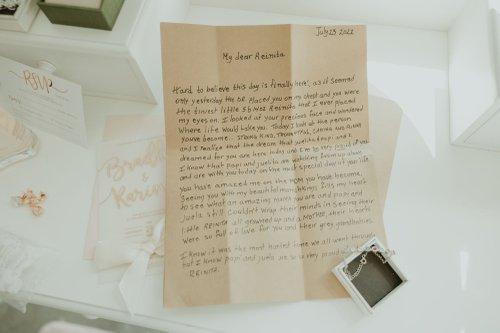 July 23 2022
My dear Reinita
Hard to believe this day is finally here, as if seemed
only yesterday the DR placed you on my chest and you were
the tiniest little 5lb NOZ Reinita that I ever placed
my eyes on. I looked at your precious face and wondered
Where life would take you. Today I look at the person
you've become... Strong, Kind, and
and I realize that the dream that juelita papi and I
dreamed for you are here baby and I'm so very proud of you
I know that papi and juelita are watching from up above
and are with you today on the most special day of your life
You have amazed me on the MOM you have become,
Seeing you with my beautiful fills my heart
to see what an amazing mama you are and papi and
Juela still couldn't wrap their minds in seeing their
little REINITA all grownup and a MOTHER, their hearts
were so full of love for you and their grey grandbabies.
I know it was the most hardest time we all went through
but I know papi and juela are so so very proud
REINITA.
RSVP
Bradley
&
Karina